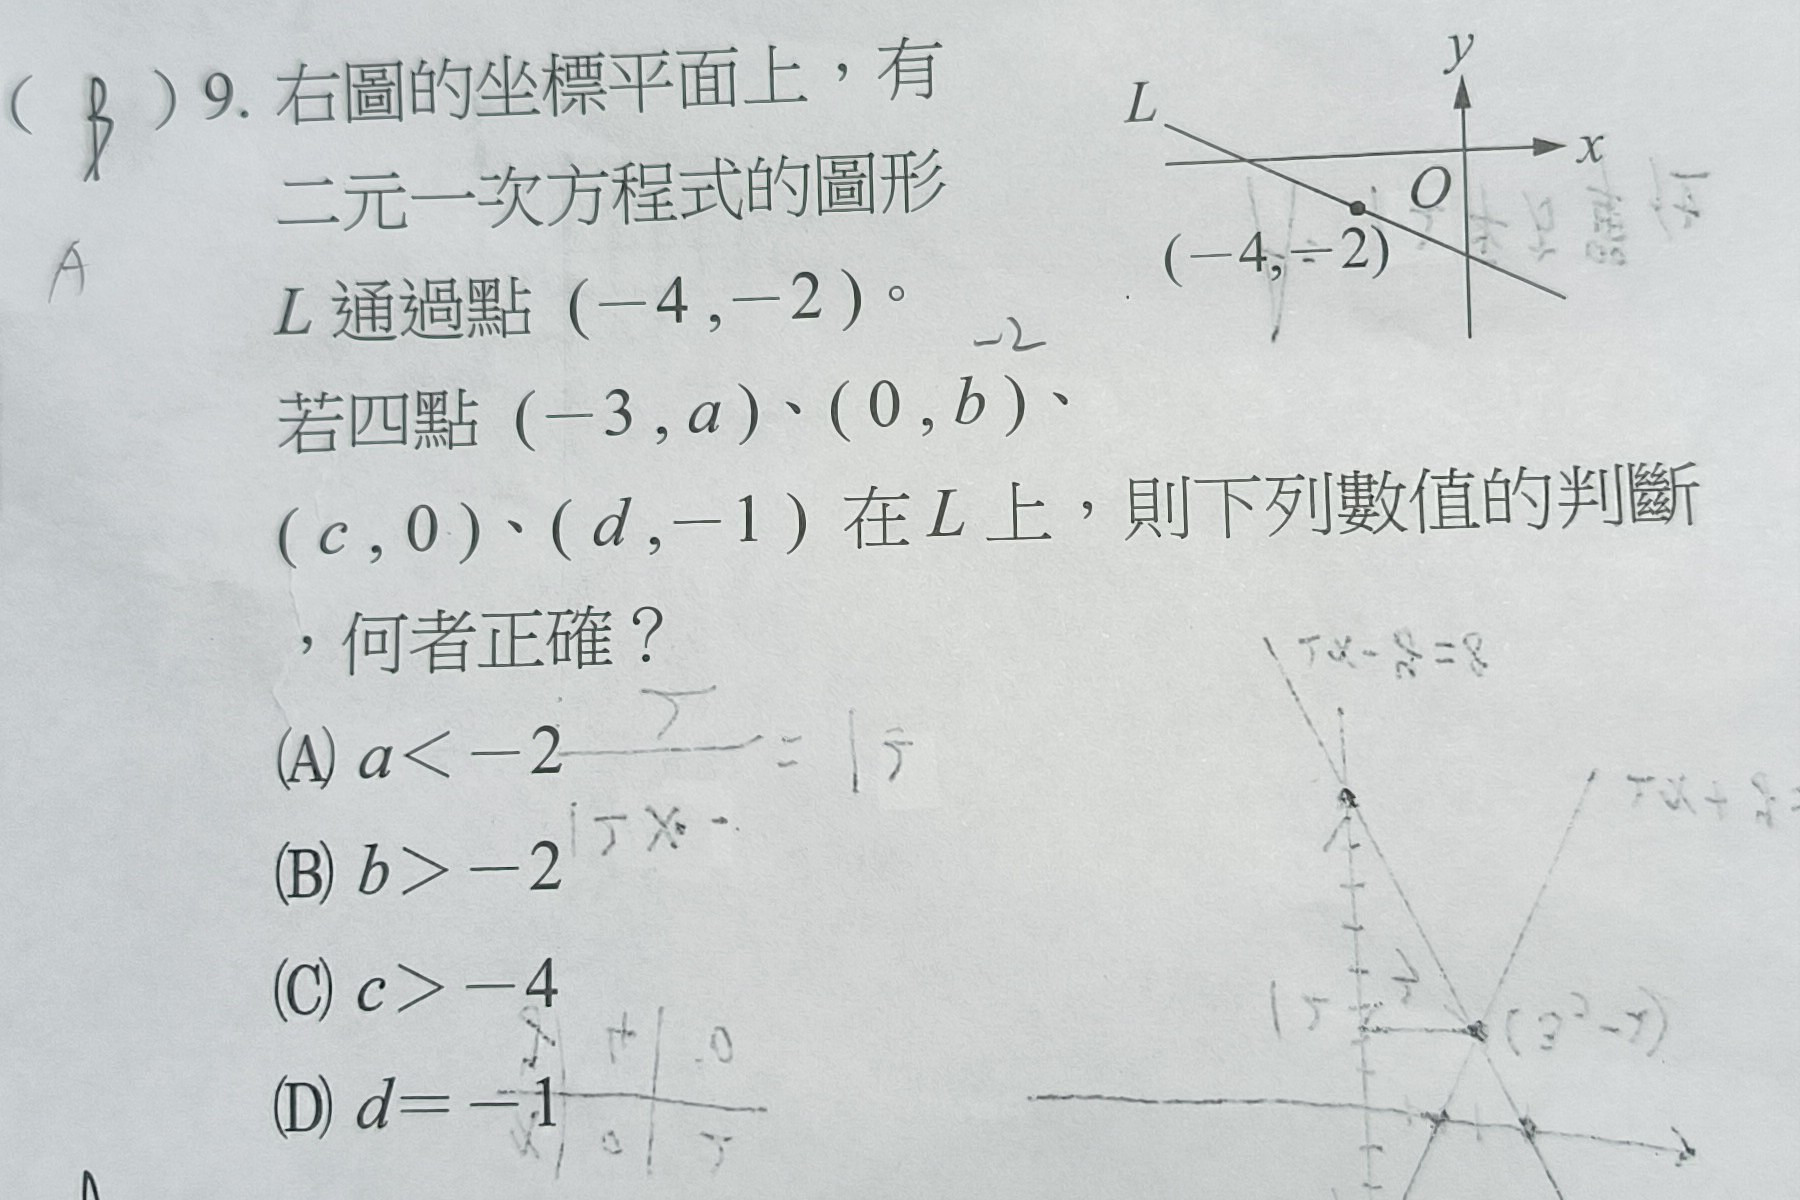 ( B ) 9. 右圖的坐標平面上，有
二元一次方程式的圖形
A
L 通過點 (－4 , －2 )。
－2
若四點 (－3 , a )、( 0 , b )、
( c , 0 )、( d , －1 ) 在 L 上，則下列數值的判斷
，何者正確？
(A) a＜－2
(B) b＞－2
(C) c＞－4
(D) d＝－1
y
L
x
O
(－4,－2)